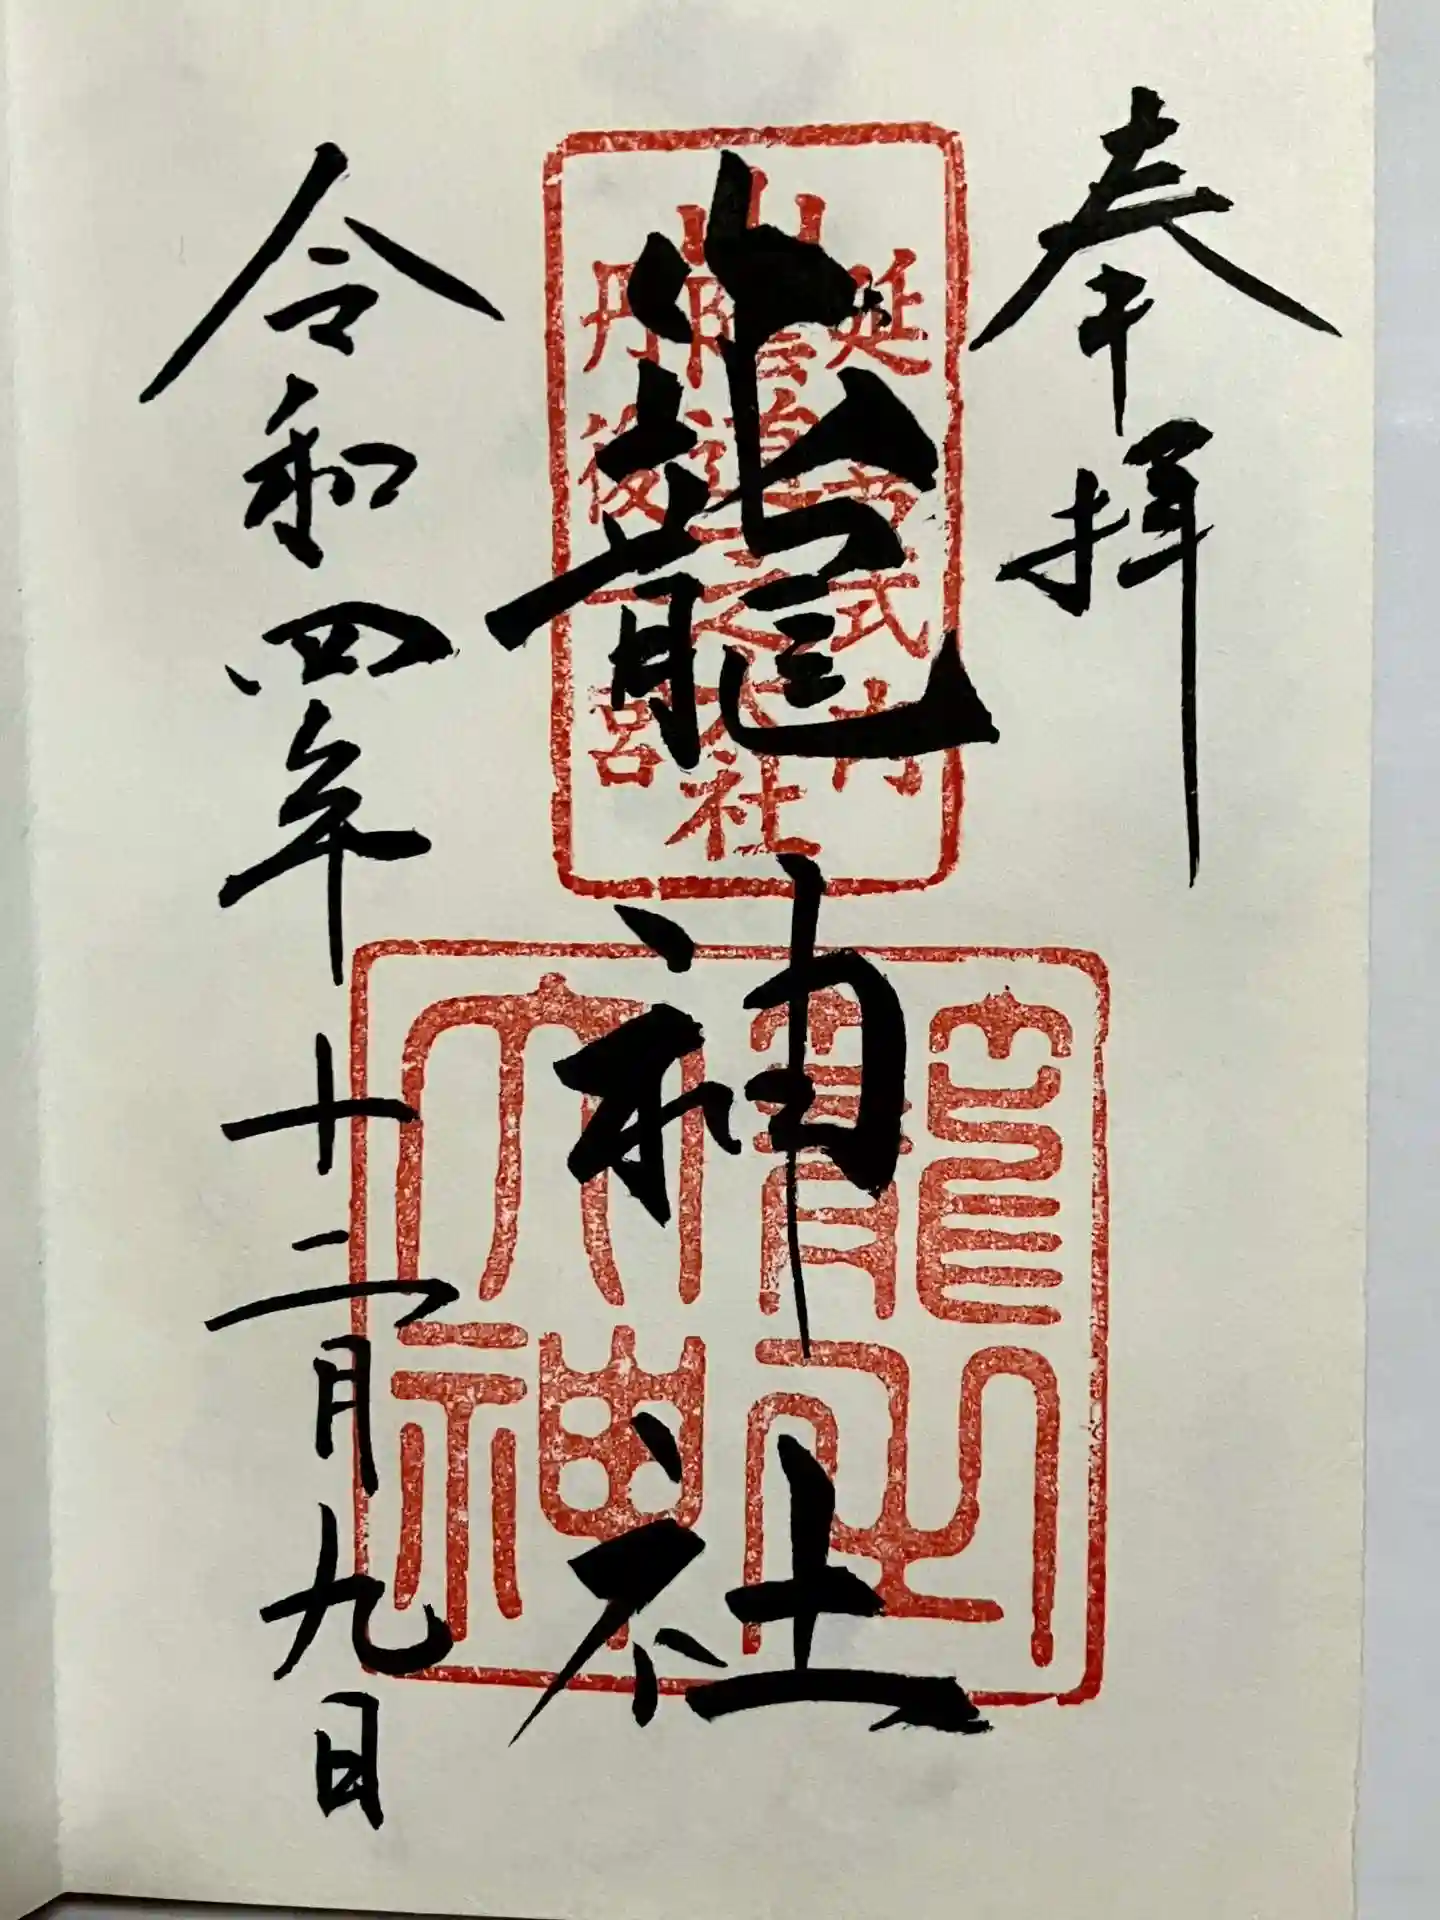 奉拝
延喜式内
山陰道之大社
丹後一宮
籠神社
籠之大神
令和四年十二月九日